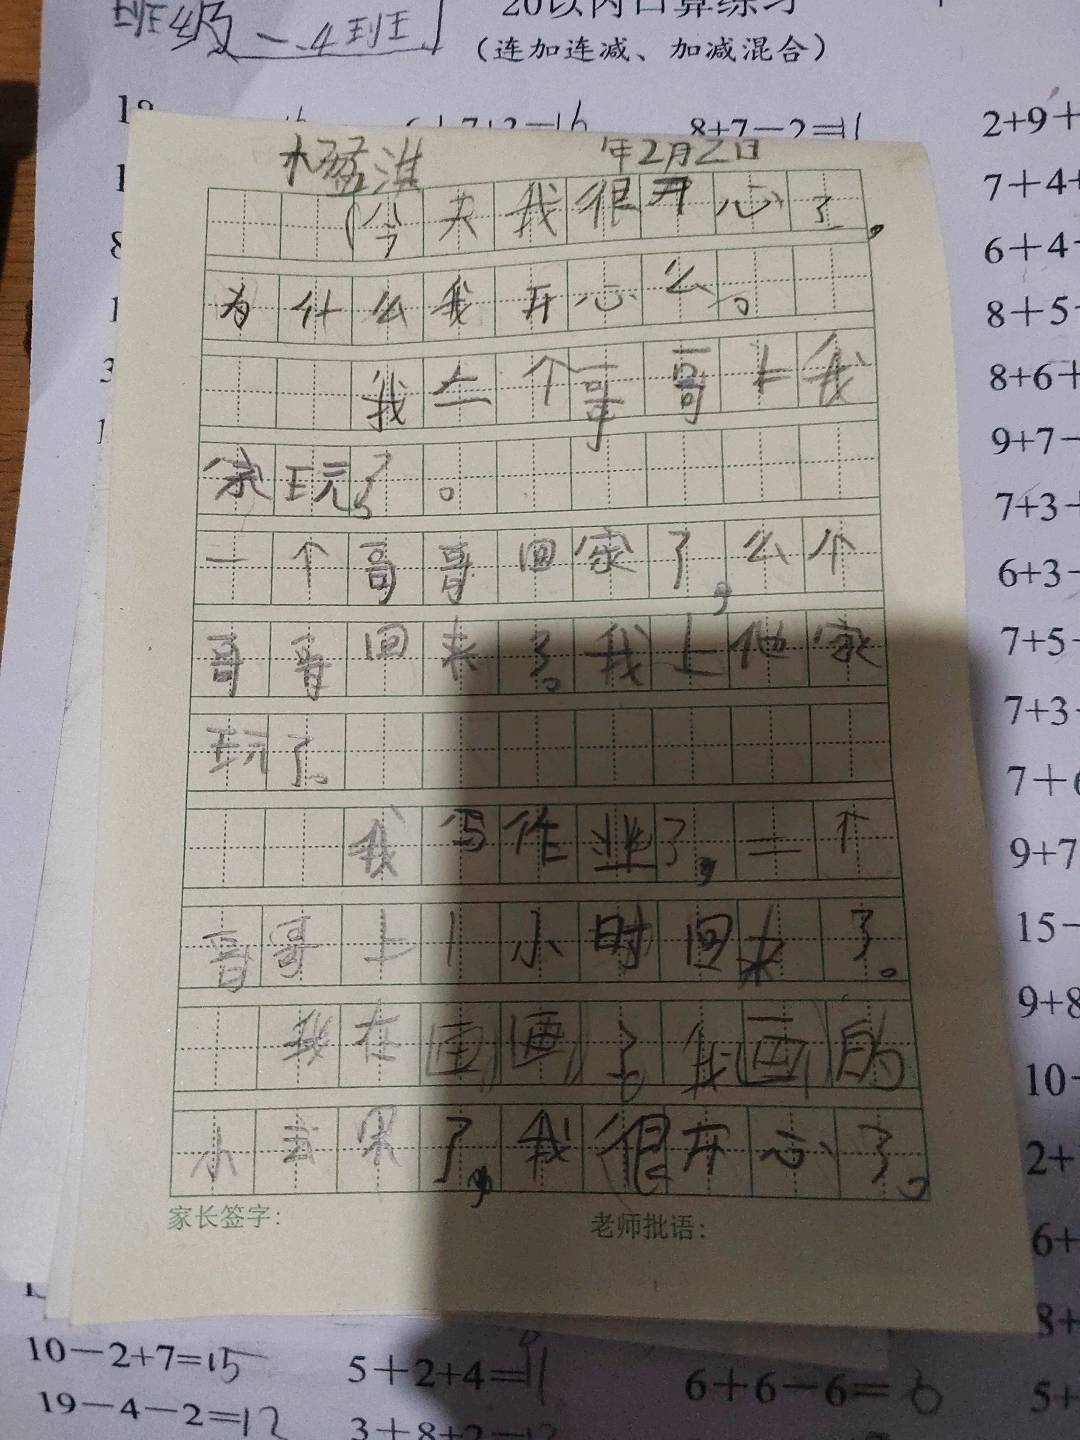 班级 一.4班
20以内口算练习
（连加连减、加减混合）
6+7+3=16
8+7-2=11
2+9+
7+4+
6+4
8+5
8+6+
9+7-
7+3
6+3-
7+5
7+3
7+
9+7
15-
9+8
10-
2+
6+
8+
5+
年2月2日
今天我很开心了，
为什么我开心么。
我二个哥哥上我
家玩了。
一个哥哥回家了，么个
哥哥回来了。我上他家
玩了。
我写作业了，二个
哥哥上1小时回来了。
我在画画了。我画的
小
了，我很开心了。
家长签字：
老师批语：
10-2+7=15
5+2+4=11
6+6-6=6
19-4-2=12
3+8+2=13